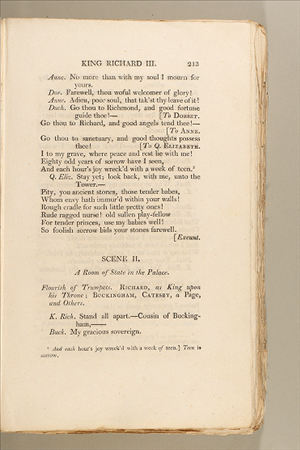 KING RICHARD III. 213
Anne. No more than with my soul I mourn for
yours.
Dor. Farewell, thou woful welcomer of glory!
Anne. Adieu, poor soul, that tak'st thy leave of it!
Duch. Go thou to Richmond, and good fortune
guide thee!— [To DORSET.
Go thou to Richard, and good angels tend thee!—
[To ANNE.
Go thou to sanctuary, and good thoughts possess
thee! [To Q. ELIZABETH.
I to my grave, where peace and rest lie with me!
Eighty odd years of sorrow have I seen,
And each hour's joy wreck'd with a week of teen.⁵
Q. Eliz. Stay yet; look back, with me, unto the
Tower.—
Pity, you ancient stones, those tender babes,
Whom envy hath immur'd within your walls!
Rough cradle for such little pretty ones!
Rude ragged nurse! old sullen play-fellow
For tender princes, use my babies well!
So foolish sorrow bids your stones farewell.
[Exeunt.
SCENE II.
A Room of State in the Palace.
Flourish of Trumpets. RICHARD, as King upon
his Throne; BUCKINGHAM, CATESBY, a Page,
and Others.
K. Rich. Stand all apart.—Cousin of Bucking-
ham,——
Buck. My gracious sovereign.
⁵ And each hour's joy wreck'd with a week of teen.] Teen is
sorrow.